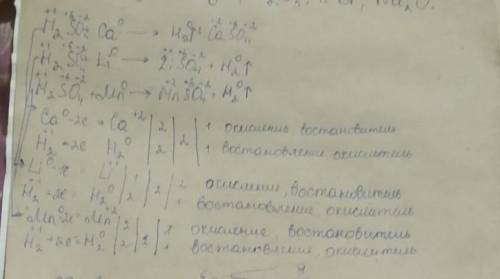 H₂SO₄ Ca⁰ → H₂⁰↑ CaSO₄
H₂SO₄ + Li⁰ → Li SO₄ + H₂⁰↑
H₂SO₄ + Mn⁰ → MnSO₄ + H₂⁰↑
Ca⁰-2e = Ca⁺² | 2 | 2 | 1 окисление востановитель
H₂ +2e H₂⁰ | 2 | 1 востановление окислитель
Li⁰-1e = Li | 1 | 2 | 2 окисление, востановитель
H₂ +2e = H₂⁰ | 2 | 1 востановление, окислитель
Mn⁰-2e = Mn⁺² | 2 | 2 | 1 окисление, востановитель
H₂ +2e = H₂⁰ | 2 | 1 востановление, окислитель